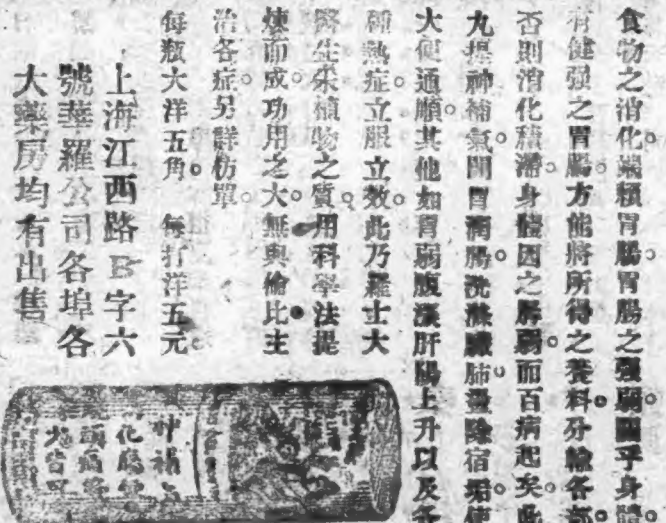 食物之消化端賴胃腸。胃腸之強弱關乎身體。
有健强之胃腸。方能將所得之養料。分輸各
否則消化積滯。身體因之孱弱。而百病起矣。此
丸提神補氣。開胃潤腸。洗滌臟肺。盪除宿垢。使
大便通順。其他如胃弱腹漲肝陽上升以及各
種熱症。立服立效。此乃羅士大
醫生采植物之質。用科學法提
煉而成。功用之大。無與倫比。主
治各症。另詳仿單。
每瓶大洋五角。每打洋五元。
上海江西路B字六
號華羅公司各埠各
大藥房均有出售